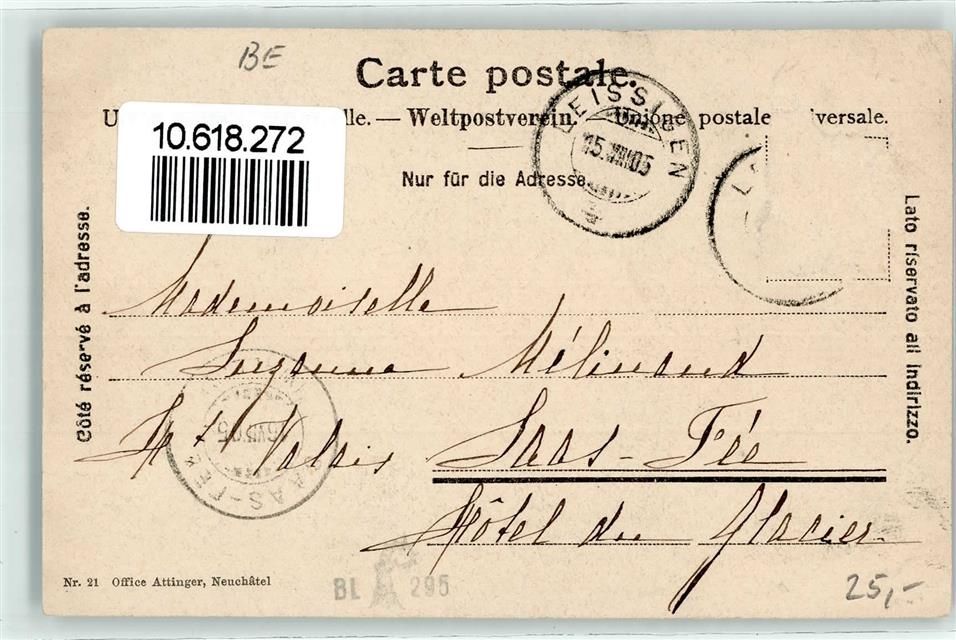 BE
Carte postale.
U lle. — Weltpostverein. — Unione postale versale.
10.618.272
Nur für die Adresse
LEISSIGEN
15.VIII.05
Côté réservé à l'adresse.
Lato riservato all indirizzo.
Mademoiselle
Suzanne Mélinand
Ht Valais Saas-Fée
Hôtel du Glacier
SAAS-FEE
16.VIII.05
Nr. 21 Office Attinger, Neuchâtel
BL 295
25,-